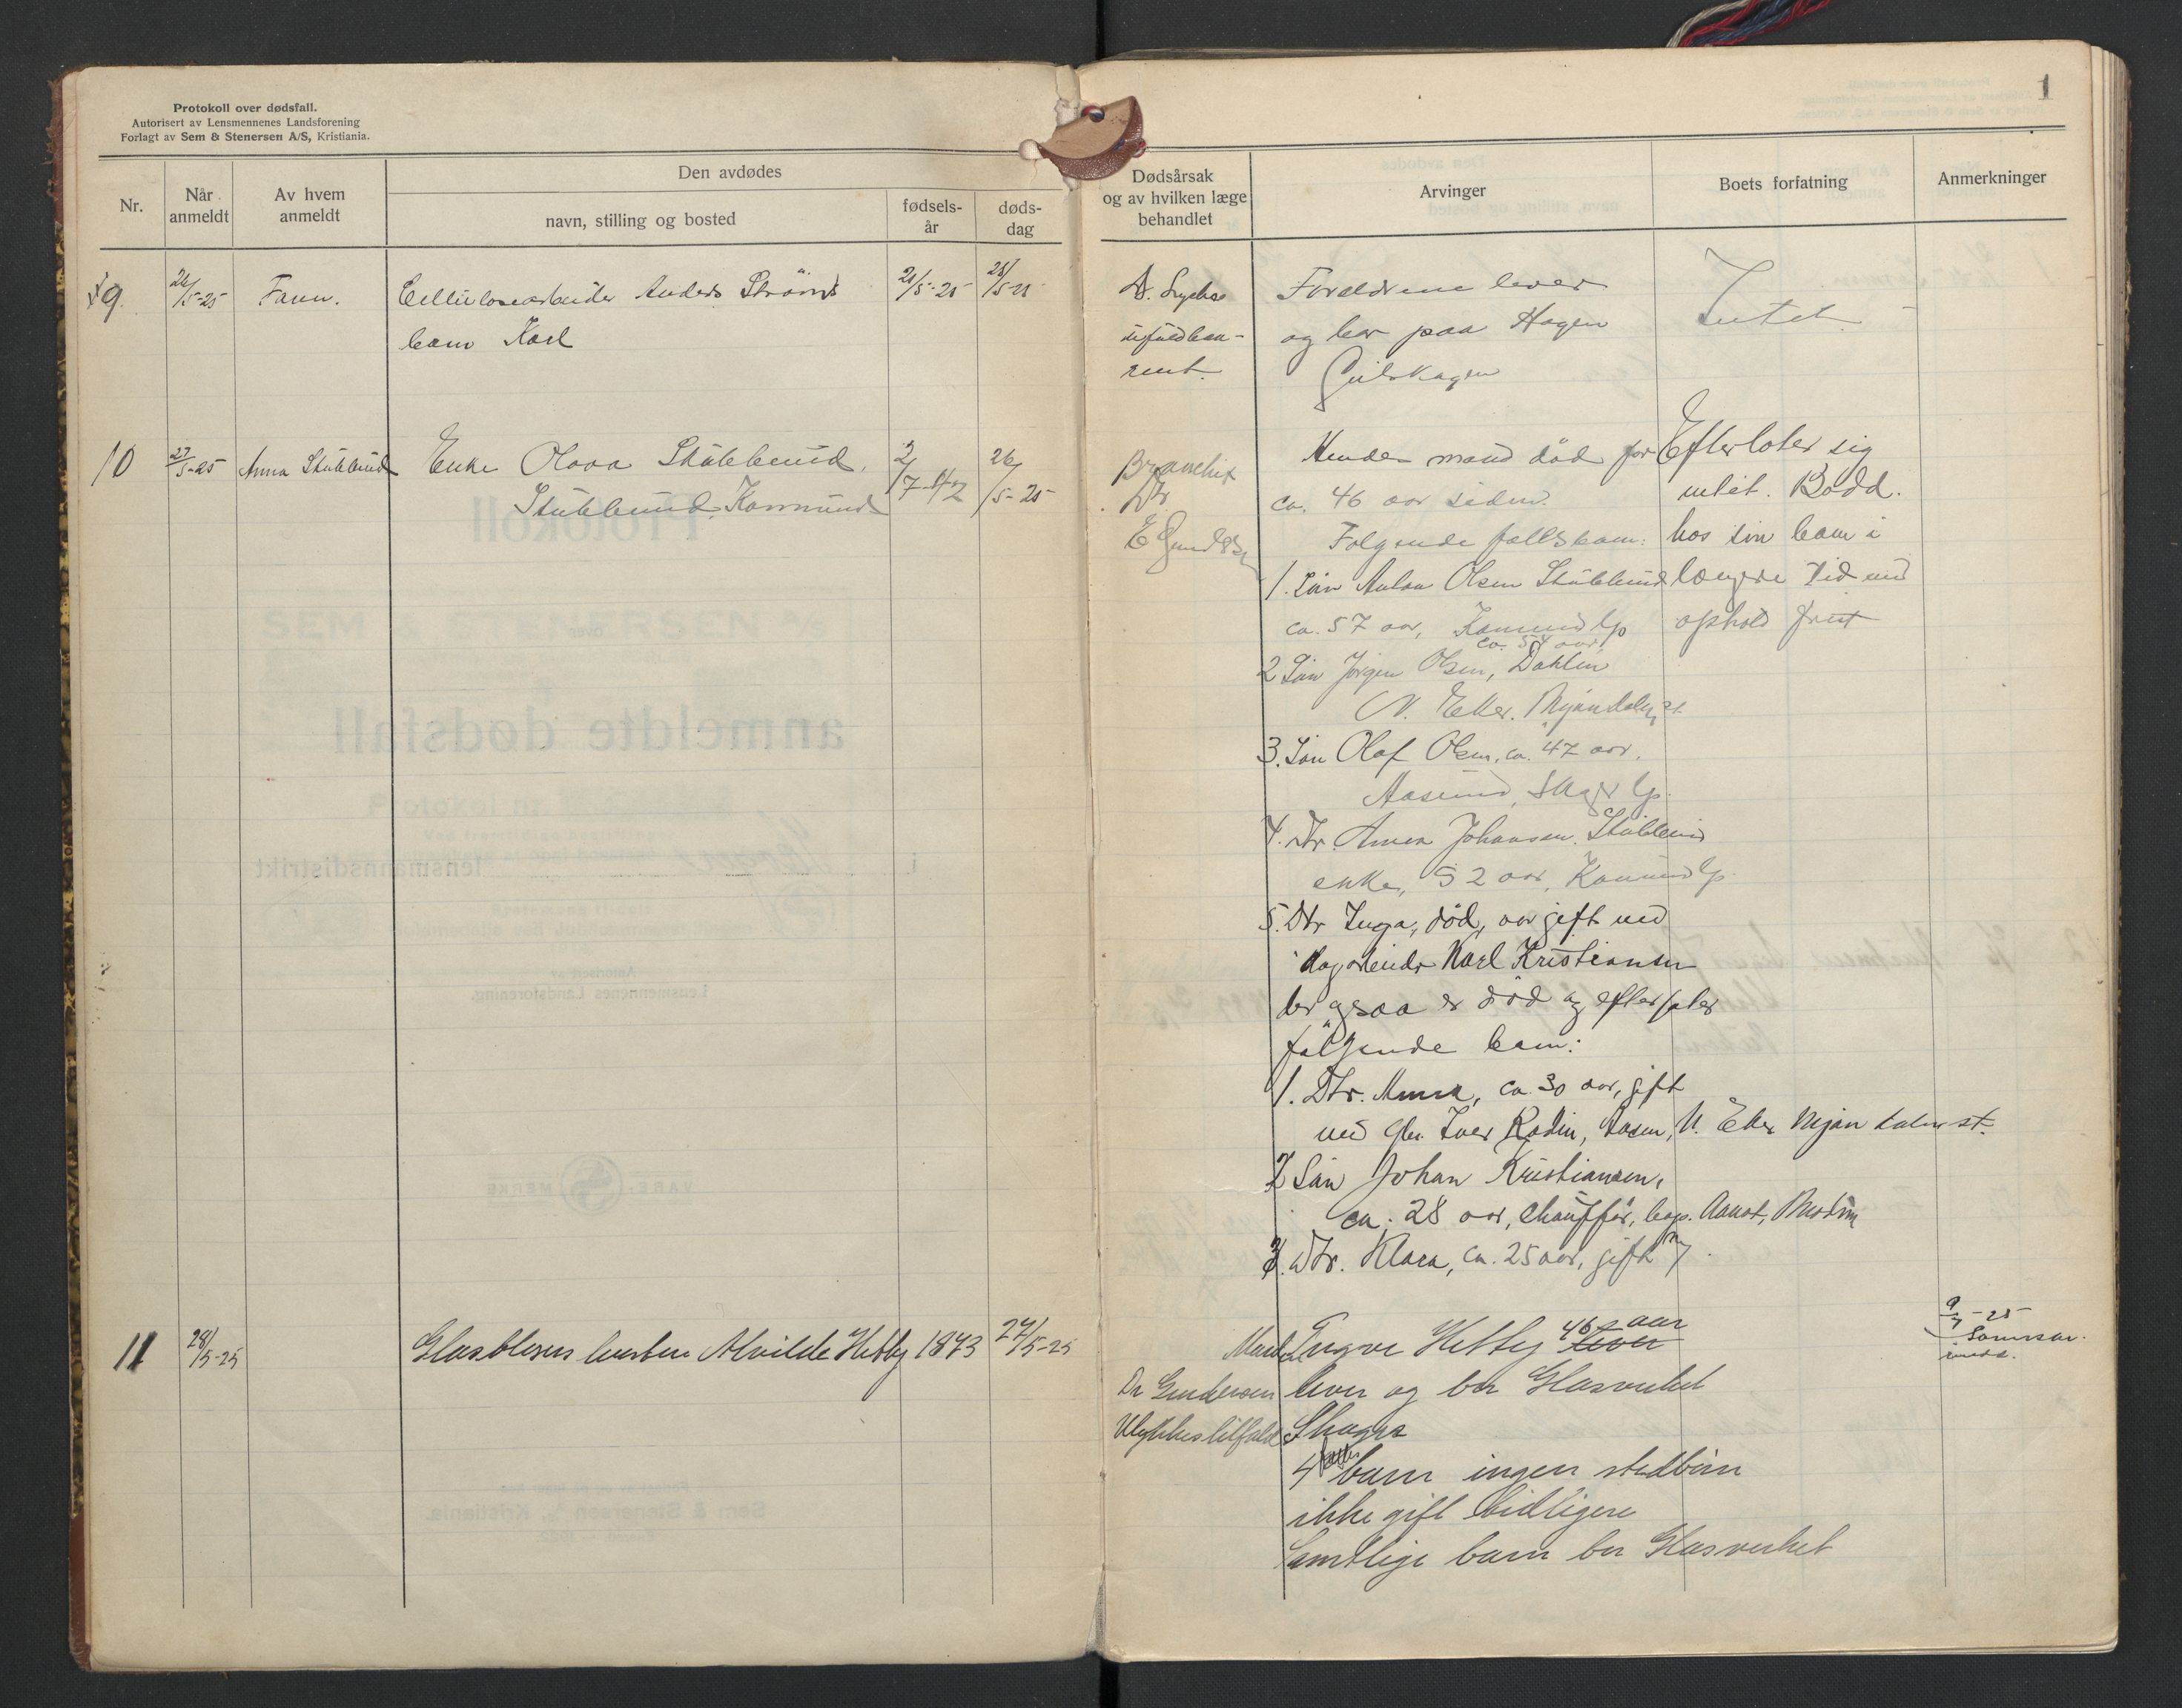 1
Protokoll over dødsfall.
Autorisert av Lensmennenes Landsforening
Forlagt av Sem & Stenersen A/S, Kristiania.
Nr.
Når anmeldt
Av hvem anmeldt
Den avdødes
navn, stilling og bosted
fødsels-år
døds-dag
Dødsårsak og av hvilken læge behandlet
Arvinger
Boets forfatning
Anmerkninger
9.
/5-25
Cellulosearbeider Anders Strøms
barn Karl
/5-25
/5-25
Forældrene lever
og bor paa Hagen
Gulskogen
Intet.
10
27/5-25
Anna Stubberud
Enke Olava Stubberud,
Stubberud, Konnerud
2/7-42
26/5-25
Dr.
E Gundersen
Hendes mand död for
ca. 46 aar siden.
Følgende fællsbarn:
1. Sön Anton Olsen Stubberud
ca. 57 aar, Konnerud
ca. 54 aar
2 Sön Jörgen Olsen, Dahlen
N. Eker. Mjöndalen st.
3. Sön Olaf Olsen, ca. 47 aar.
Aaserud, Skoger
4. Dtr. Anna Johansen, Stubberud
enke, 52 aar, Konnerud
5. Dtr Inga, död, var gift med
dagarbeider Karl Kristiansen
der ogsaa er död og efterlater
følgende barn:
1. Dtr. Anna, ca. 30 aar, gift
med Iver Rodin, Aasen, N. Eker Mjöndalen st.
2 Sön Johan Kristiansen,
ca. 28 aar, chauffør, Aamot, Modum
3. Dtr. Klara, ca. 25 aar, gift
Efterlater sig
intet. Bodd
hos sin barn i
længere tid med
ophold frit
11
28/5-25
Glasblesers hustru Alvilde Hebby
1873
27/5-25
Dr Gundersen
Ulykkestilfelde
Mand Ingvar Hebby 46 aar lever
lever og bor Glasverket
Skoger
4 fælles barn ingen stedbörn
ikke gift tidligere
Samtlige barn bor Glasverket
9/7-25